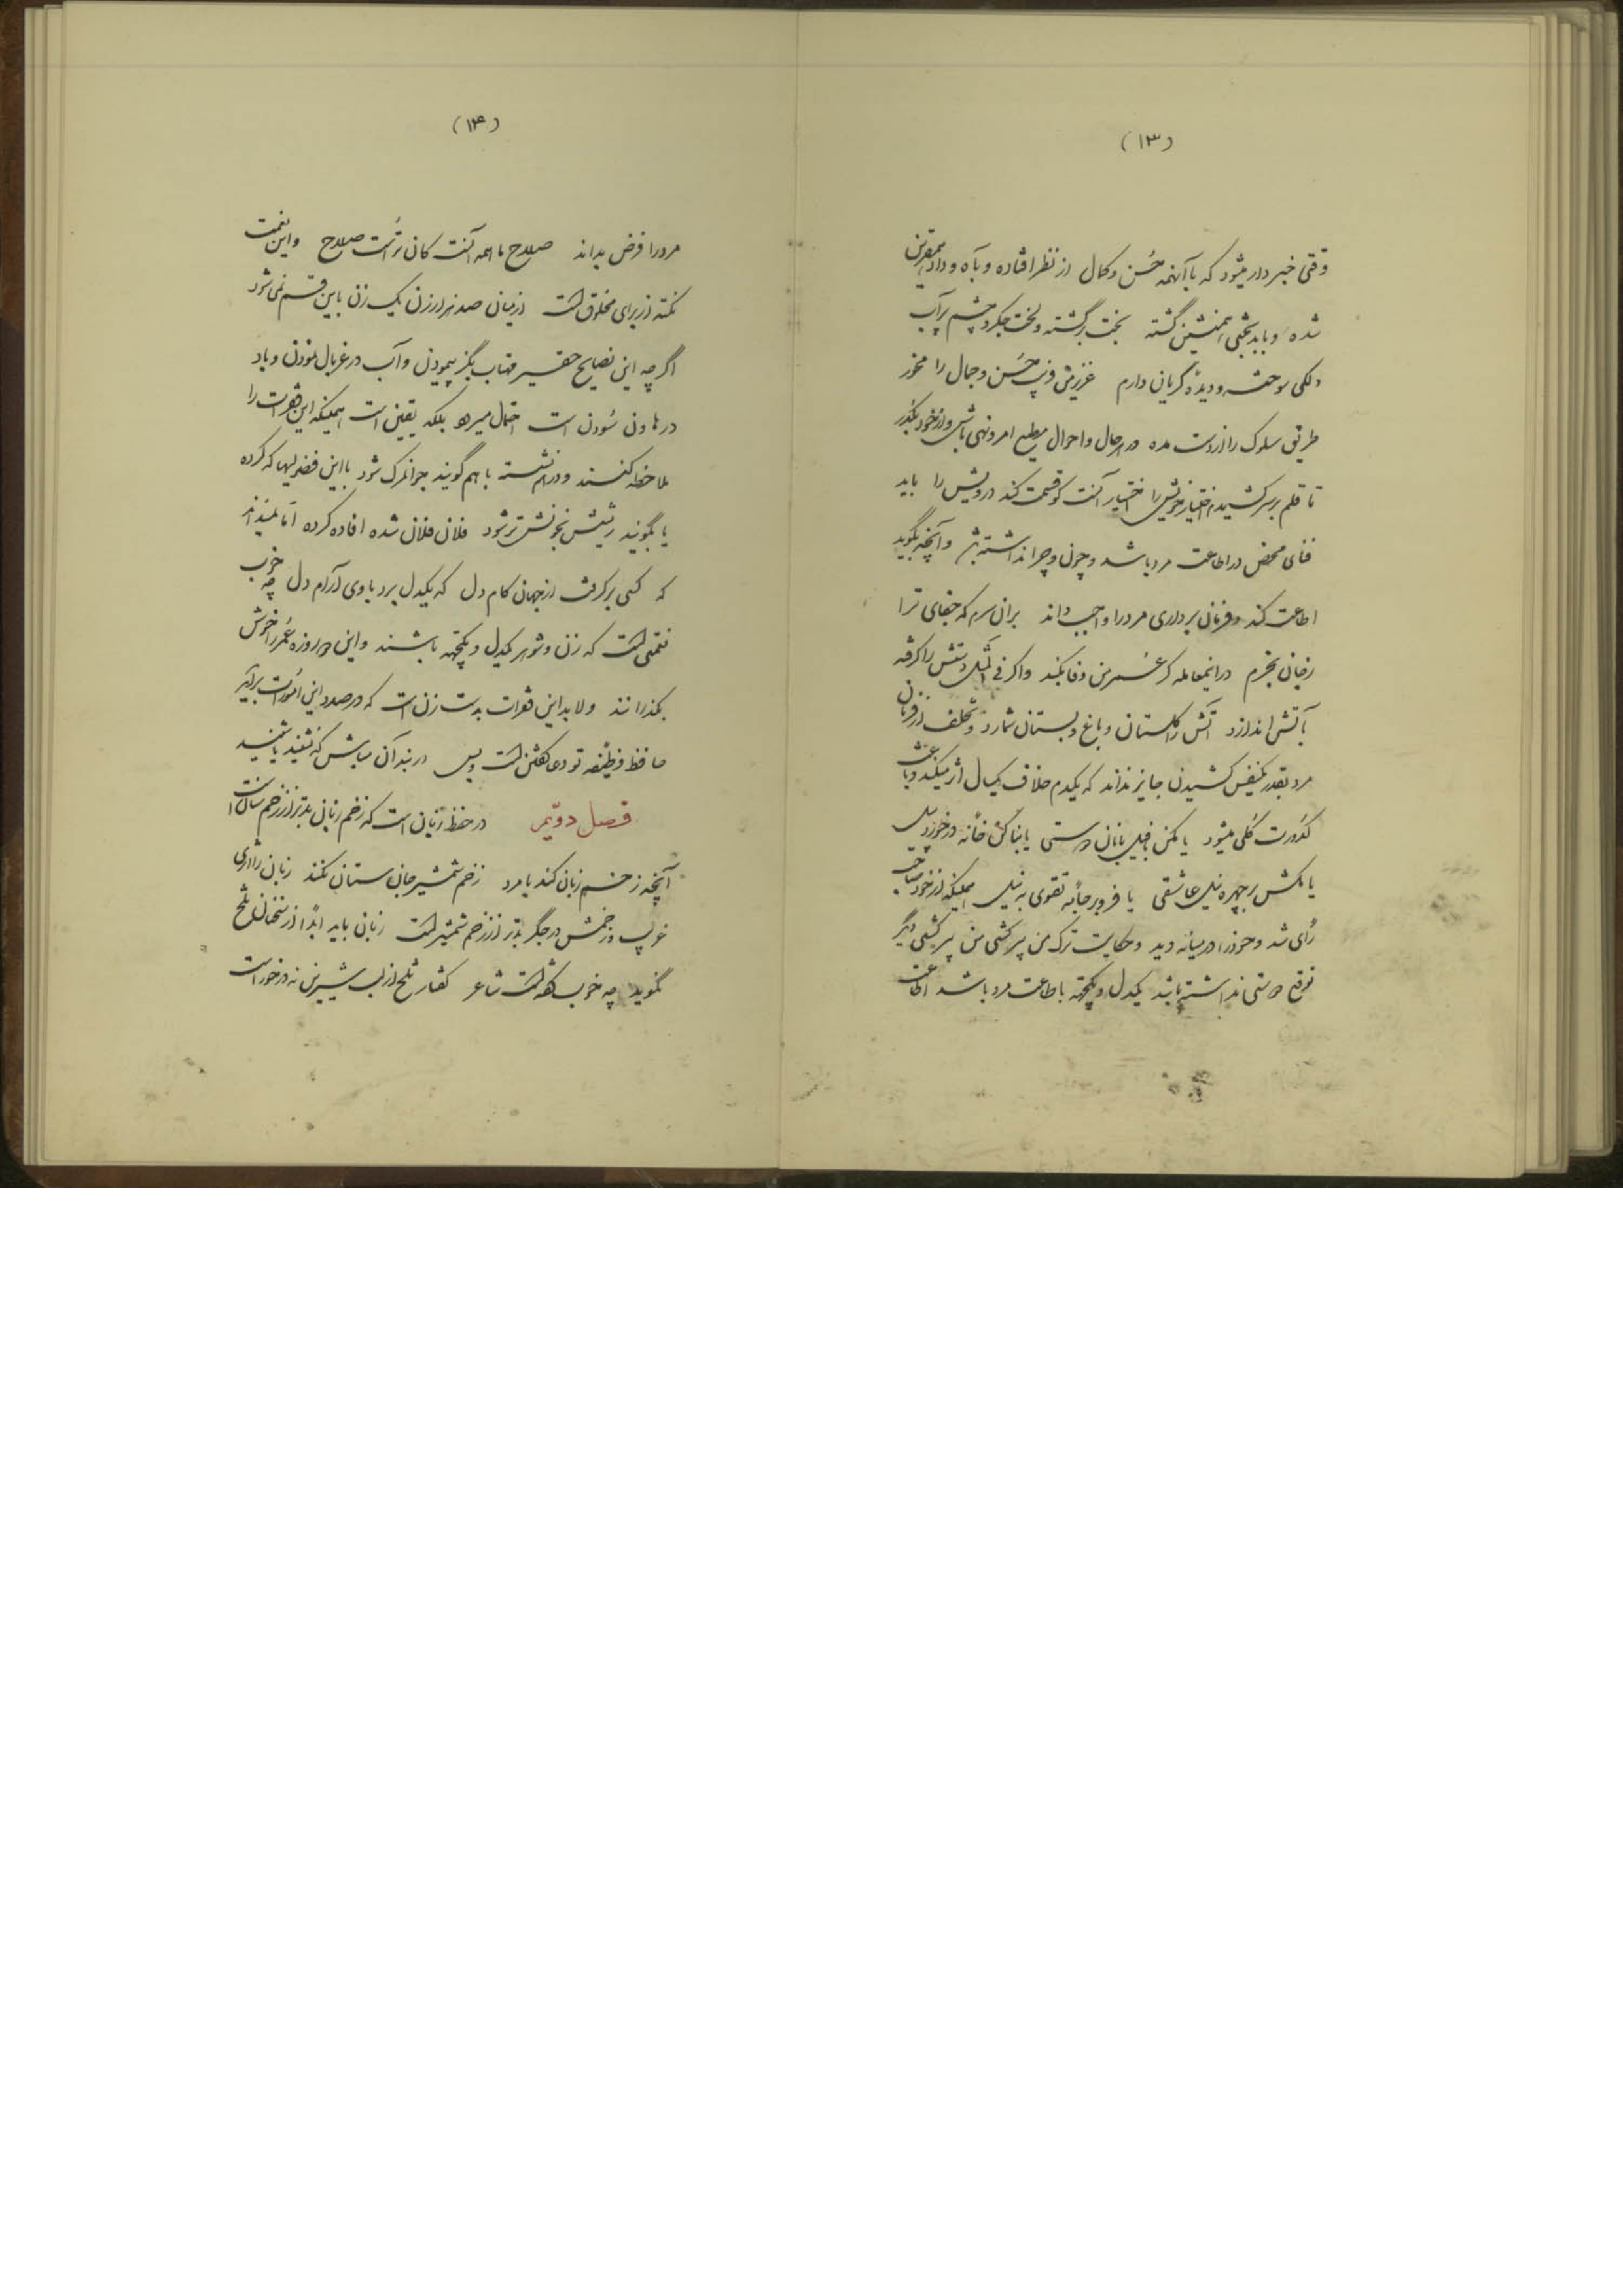 (۱۳)
وقتی خبردار میشود که با آنهمه حُسن و کمال از نظر افتاده و با آه و داد همقرین
شده و با بدبختی همنشین گشته بخت برگشته و لخت جگر و چشم پرآب
دلکی سوخته و دیده گریان دارم عزیز من فریب حُسن و جمال را مخور
طریق سلوک را از دست مده در هر حال و احوال مطیع امر و نهی باش و از خود بگذر
تا قلم بر سر کشیدم اختیار خویش را اختیار آنست کو قسمت کند درویش را باید
فنای محض در اطاعت مرد باشد و چون و چرا نداشته باشد و آنچه بگوید
اطاعت کند و فرمان برداری مرد را واجب داند بران سرم که جفای ترا
بجان بخرم در اینمعامله گر عُمر من وفا بکند و اگر فی المثل دستش را گرفته
بآتش اندازد آتش را گلستان و باغ و بستان شمارد و تخلف از فرمان
مرد بقدر یکنفس کشیدن جایز نداند که یکدم خلاف یکسال اثر میکند و باعث
کدورت کلی میشود یا مکن با فیل بانان دوستی یا بنا کن خانه در خورد پیل
یا مکش بر چهره نیل عاشقی یا فرو بر جامه تقوی به نیل همینکه از خود صاحب
رأی شد و خود را در میانه دید و حکایت ترک من پسر کشی من پسر کشی دیگر
توقع دوستی نداشته باشد یکدل و یکجهة باطاعت مرد باشد اطاعت
(۱۴)
مرد را فرض بداند صلاح ما همه آنست کان تُراست صلاح و این نعمت
نکته از برای مخلوق است از میان صد هزار زن یک زن باین قسم نمیشود
اگرچه این نصایح حقیر مهتاب بگز پیمودن و آب در غربال نمودن و باد
در هاون سُودن است احتمال میرود بلکه یقین است همینکه این فقرات را
ملاحظه کنند و در هم نشسته با هم گویند جوانمرگ شود با این فضولیها که کرده
یا بگویند ریشش بخونش تر شود فلان فلان شده افاده کرده اما نمیدانند
که کسی برگرفت از جهان کام دل که یکدل بود با وی آرام دل چه خوب
نعمتی است که زن و شوهر یکدل و یکجهة باشند و این دو روزه عُمر را خوش
بگذرانند و لابد این فقرات بدست زن است که در صدد این امورات برآید
حافظ وظیفه تو دعا گفتن است و بس در بند آن مباش که نشنید یا شنید
فصل دویّم در حفظ زبان است که زخم زبان بدتر از زخم سنان است
آنچه زخم زبان کند با مرد زخم شمشیر جان ستان نکند زبان را اثری
غریب و زخمش در جگر بدتر از زخم شمشیر است زبان باید ابداً از سخنان تلخ
نگوید چه خوب گفته است شاعر گفتار تلخ از لب شیرین نه در خور است